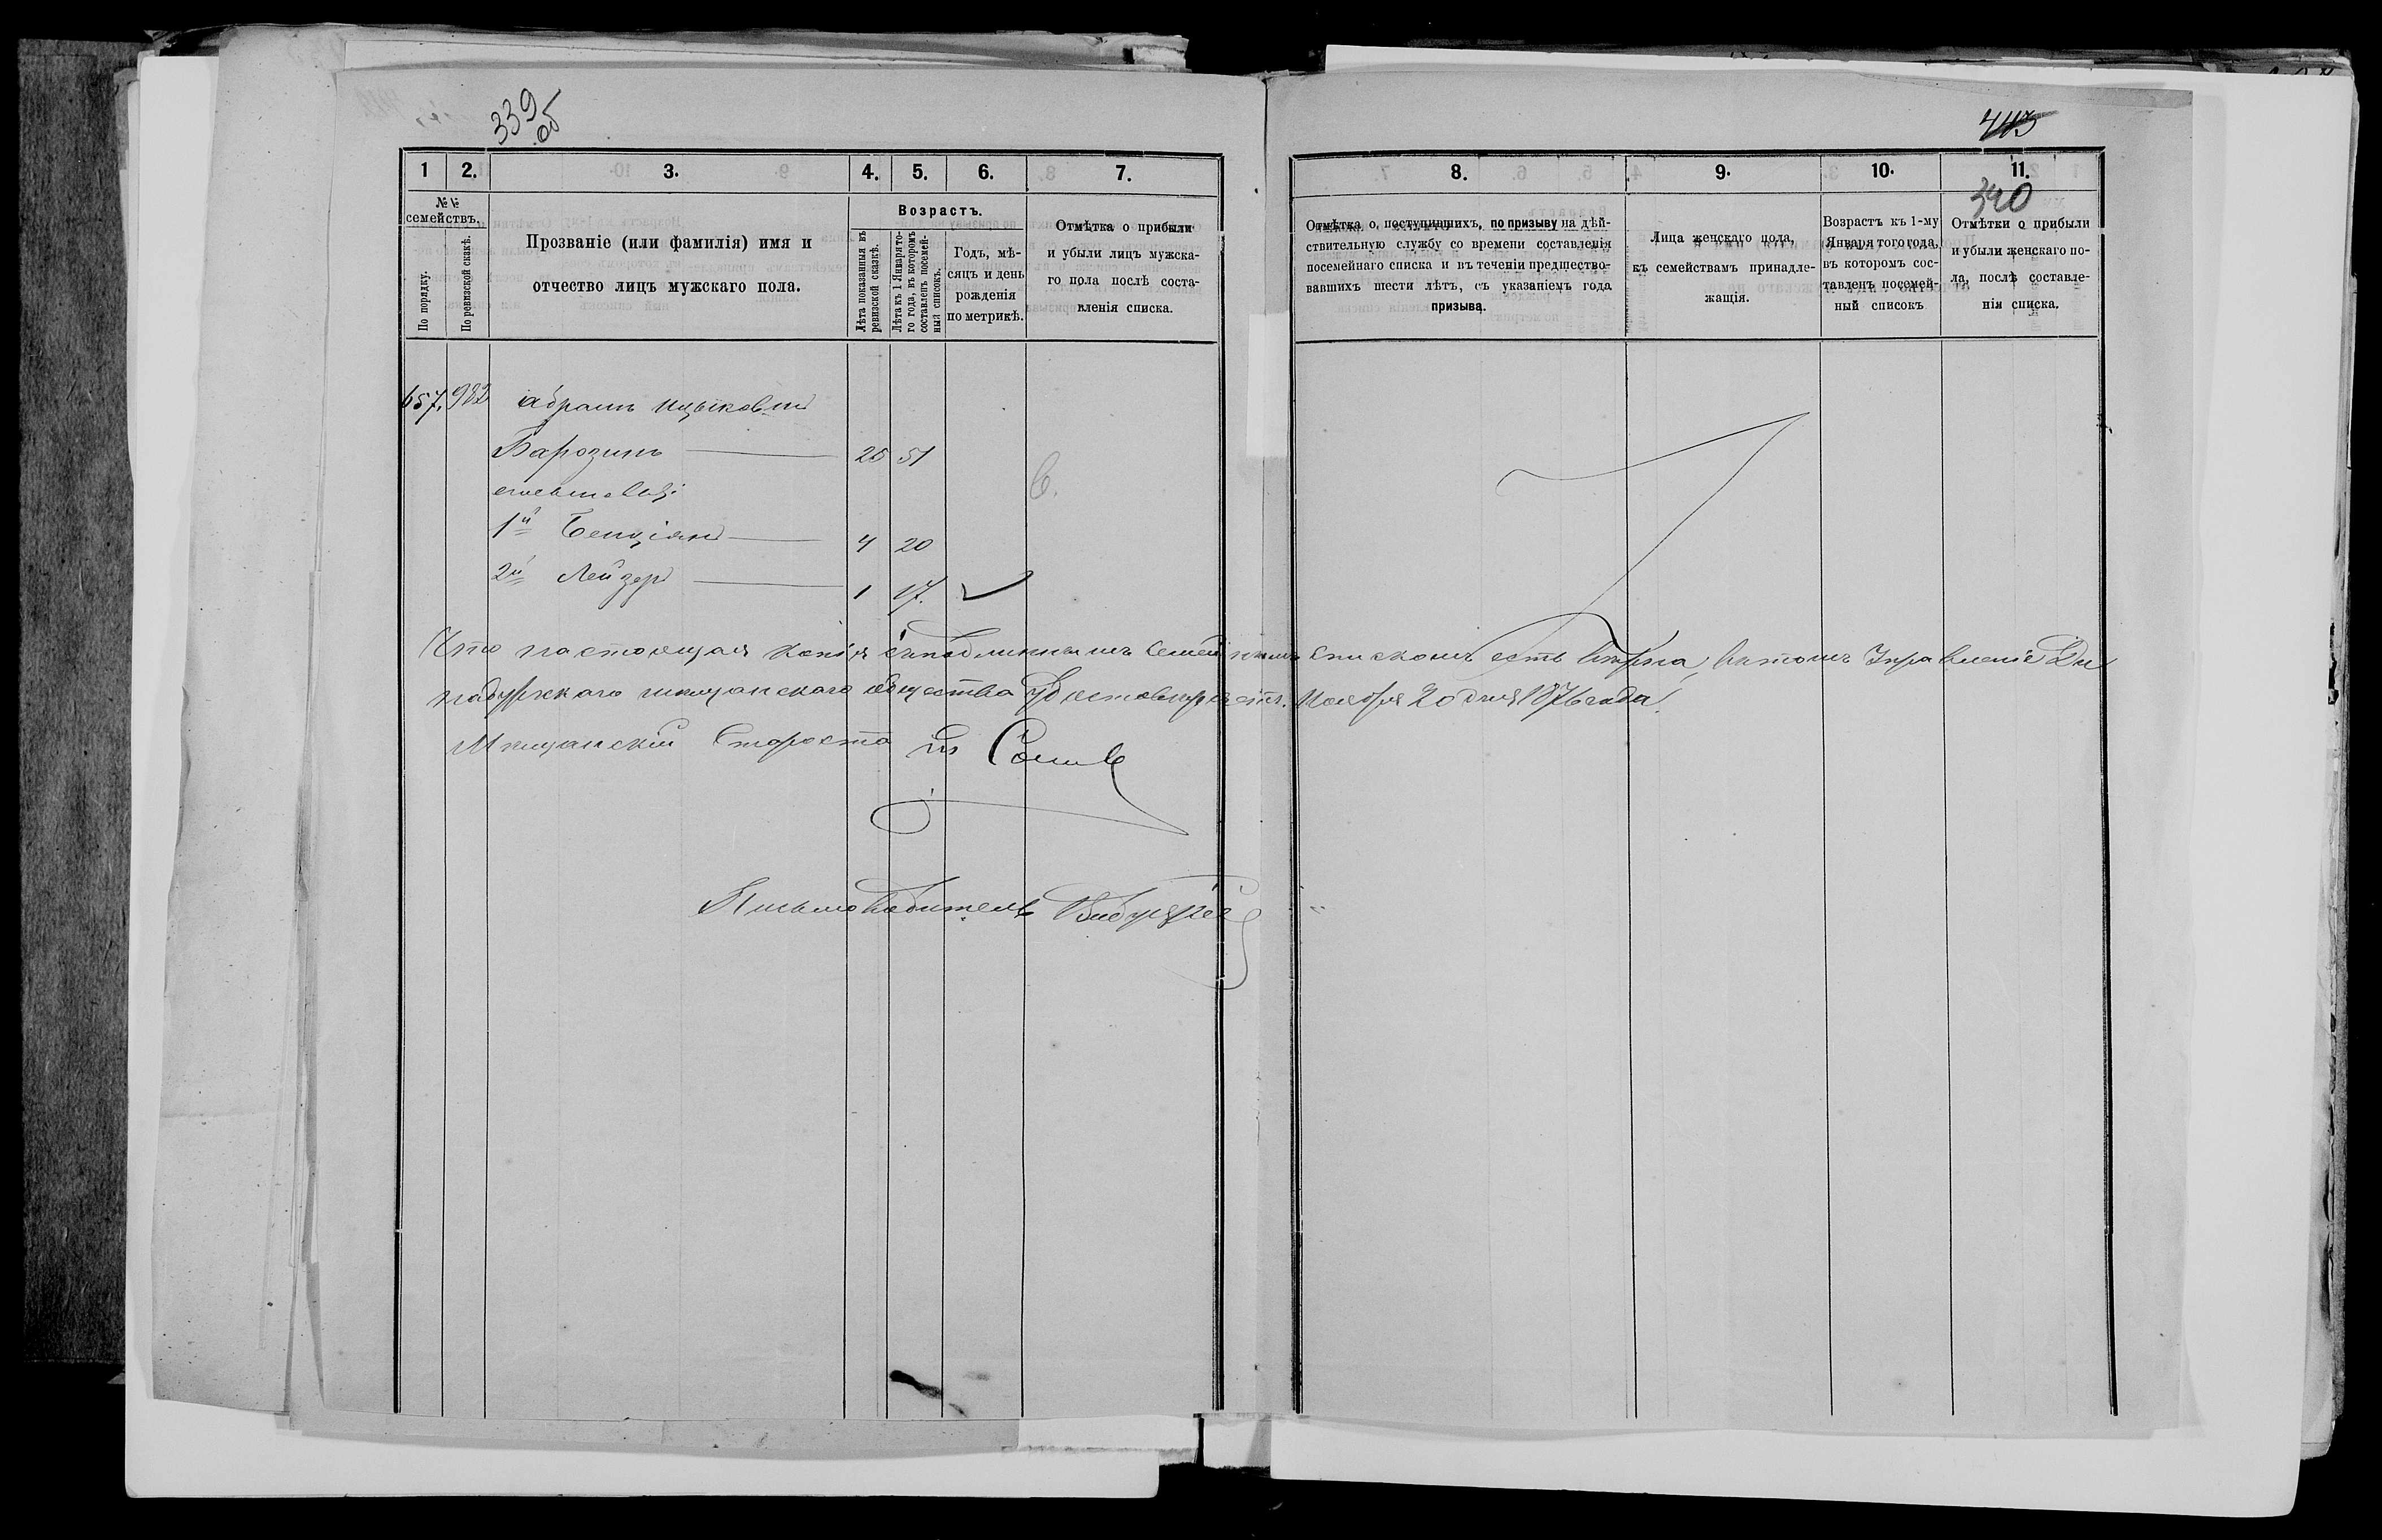 339
об
443
340
1 2. 3. 4. 5. 6. 7.
№№ семействъ.
По порядку.
По ревизской сказкѣ.
Прозваніе (или фамилія) имя и
отчество лицъ мужскаго пола.
Возрастъ.
Лѣта показанныя въ
ревизской сказкѣ.
Лѣта къ 1 Января то-
го года, въ которомъ
составленъ посемей-
ный списокъ.
Годъ, мѣ-
сяцъ и день
рожденія
по метрикѣ.
Отмѣтка о прибыли
и убыли лицъ мужска-
го пола послѣ соста-
вленія списка.
8. 9. 10. 11.
Отмѣтка о поступившихъ, по призыву на дѣй-
ствительную службу со времени составленія
посемейнаго списка и въ теченіи предшество-
вавшихъ шести лѣтъ, съ указаніемъ года
призыва.
Лица женскаго пола,
къ семействамъ принадле-
жащія.
Возрастъ къ 1-му
Января того года,
въ которомъ сос-
тавленъ посемей-
ный списокъ
Отмѣтки о прибыли
и убыли женскаго по-
ла, послѣ составле-
нія списка.
657. 982 Абрамъ Ицыковъ
Барозинъ 26 51
1й Бенціянъ 4 20
2й Лейзеръ 1 17.
Что настоящая копія съ подлиннымъ Семейнымъ спискомъ есть вѣрна, въ томъ Управленіе Ди
набургскаго мѣщанскаго общества удостовѣряетъ. Ноября 20 дня 1876 года.
Мѣщанскій Староста
Письмоводитель